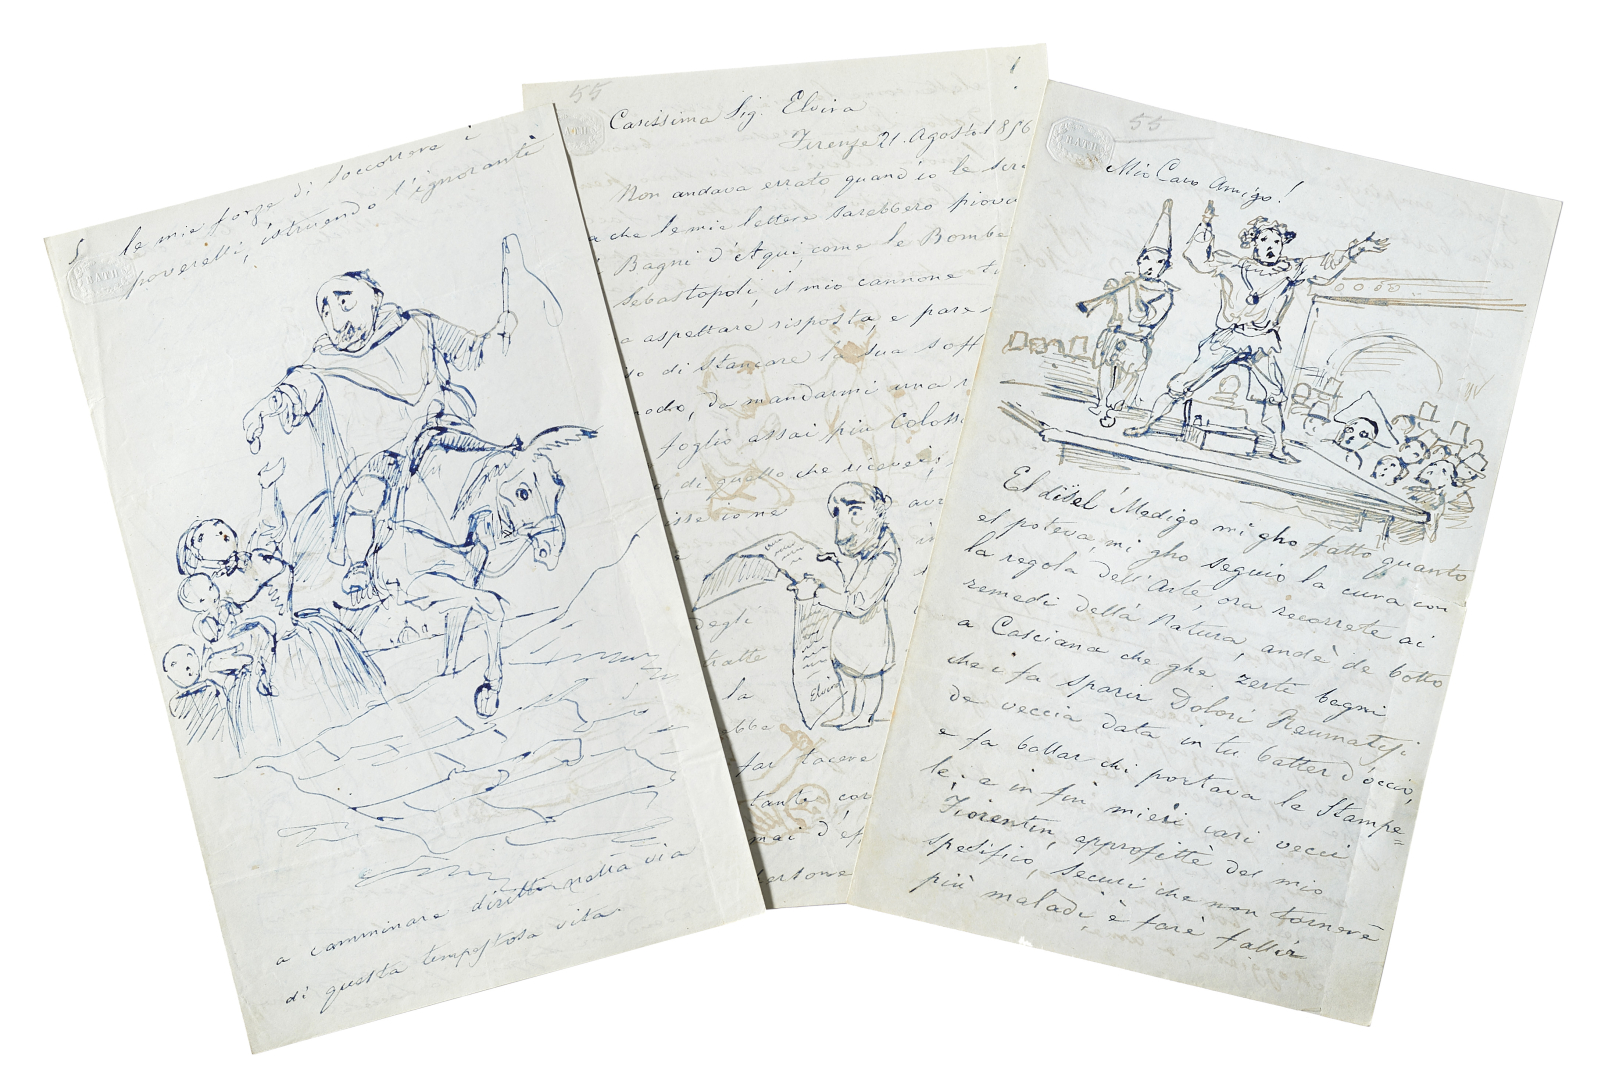 le mie forze di soccorrere i
poverelli, istruendo l'ignoranti
a camminare diritti nella via
di questa tempestosa vita.
55
Carissima Sig. Elvira
Firenze 21. Agosto 1856
Non andava errato quand'io le scri
che le mie lettere sarebbero piovu
Bagni d'Aqui, come le Bombe
Sebastopoli, il mio cannone
a aspettare risposta, e pare
di stancare la sua soff
da mandarmi una r
foglio assai più Coloss
di quello che riceve
isse come
degli
tratte
la
ebbe
far tacere
tanti cor
mai d'ef
Elvira
55
Mio Caro Amigo!
El disel Medigo mi gho fatto quanto
el poteva, mi gho seguio la cura con
la regola dell'Arte, ora recorrete ai
remedi della Natura, andè de botto
a Casciana che ghe zerti bagni
che i fa sparir Dolori Reumatisi
de veccia data in tu batter d'occio,
e fa ballar chi portava le Stampe=
le; e in fin miei cari vecci
Fiorentin, approfittè del mio
spesifico, securi che non tornerè
più maladi, è farè fallir